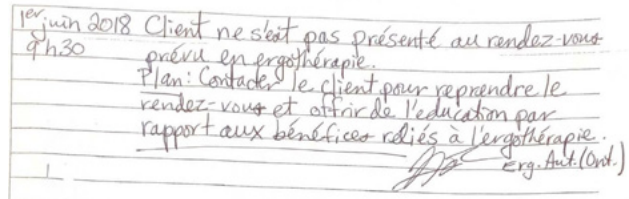 1er juin 2018 Client ne s'est pas présenté au rendez-vous
9h30 prévu en ergothérapie.
Plan: Contacter le client pour reprendre le
rendez-vous et offrir de l'education par
rapport aux bénéfices reliés à l'ergothérapie.
Erg. Aut. (Ont.)